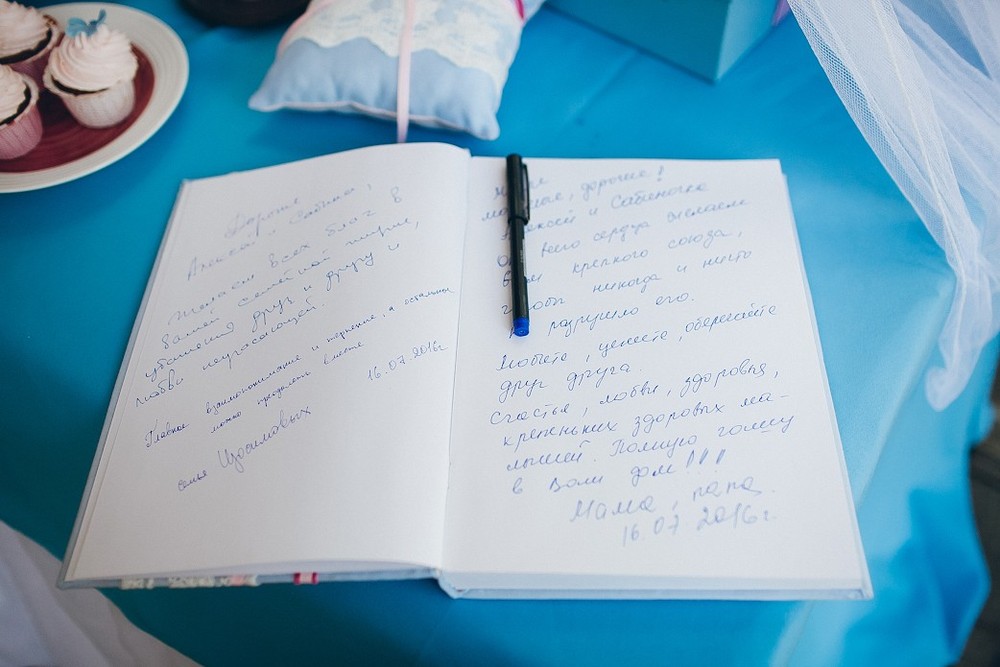 Дорогие
Алексей и Сабина,
желаем всех благ в
вашей семейной жизни,
уважения друг к другу и
любви неугасающей.
Главное взаимопонимание и терпение, а остальное
можно преодолеть вместе
16.07.2016г
семья
милые, дорогие!
Алексей и Сабиночка
От всего сердца желаем
Вам крепкого союза,
чтобы никогда и ничто
разрушило его.
Любите, цените, оберегайте
друг друга.
Счастья, любви, здоровья,
крепеньких здоровых ма-
лышей. Полную
в Ваш дом!!!
Мама, папа.
16.07.2016г.